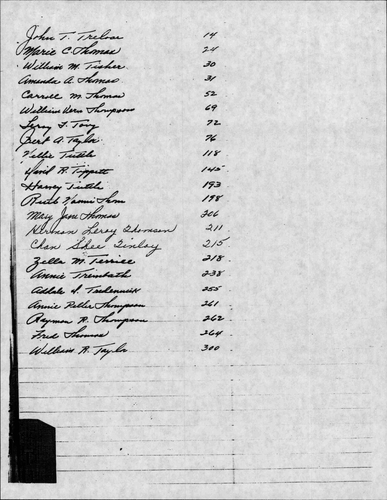 John T. Treloar 14
Marie C. Thomas 24
William M. Tisher 30
Amanda A. Thomas 31
Carroll M. Thomas 52
William Vern Thompson 69
Leroy F. 72
Bert A. Taylor 76
Nellie Tuttle 118
David R. Tippett 145
Harvey Tuttle 193
Ruth 198
Mary Jane Thomas 206
Herman Leroy Thomson 211
Chan Shee Tinloy 215
Zella M. Terrice 218
Annie Trembath 238
255
Annie Thompson 261
Raymon R. Thompson 262
Fred Thomas 264
William R. Taylor 300